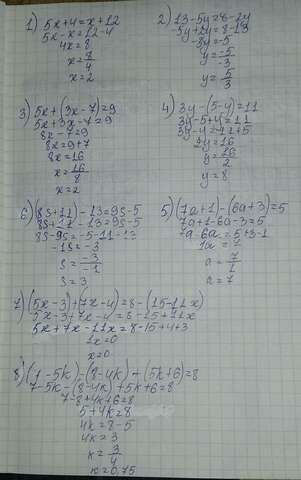 1) 5x+4=x+12
5x-x=12-4
4x=8
x=2
2) 13-5y=8-2y
-5y+2y=8-13
-3y=-5
y=-5/-3
y=5/3
3) 5x+(3x-7)=9
5x+3x-7=9
8x-7=9
8x=9+7
8x=16
x=16/8
x=2
4) 3y-(5-y)=11
3y-5+y=11
y=16/2
y=8
6) (8s+11)-13=9s-5
8s+11-13=9s-5
8s-9s=-5-11+13
-1s=-3
s=-3/-1
s=3
5) (7a+1)-(6a+3)=5
7a+1-6a-3=5
7a-6a=5+3-1
1a=7
a=7/1
a=7
7) (5x-3)+(7x-4)=8-(15-11x)
5x-3+7x-4=8-15+11x
5x+7x-11x=8-15+4+3
1x=0
x=0
8) (7-5k)-(8-4k)+(5k+6)=8
7-5k-(8-4k)+5k+6=8
7-8+4k+6=8
5+4k=8
4k=8-5
4k=3
k=3/4
k=0,75